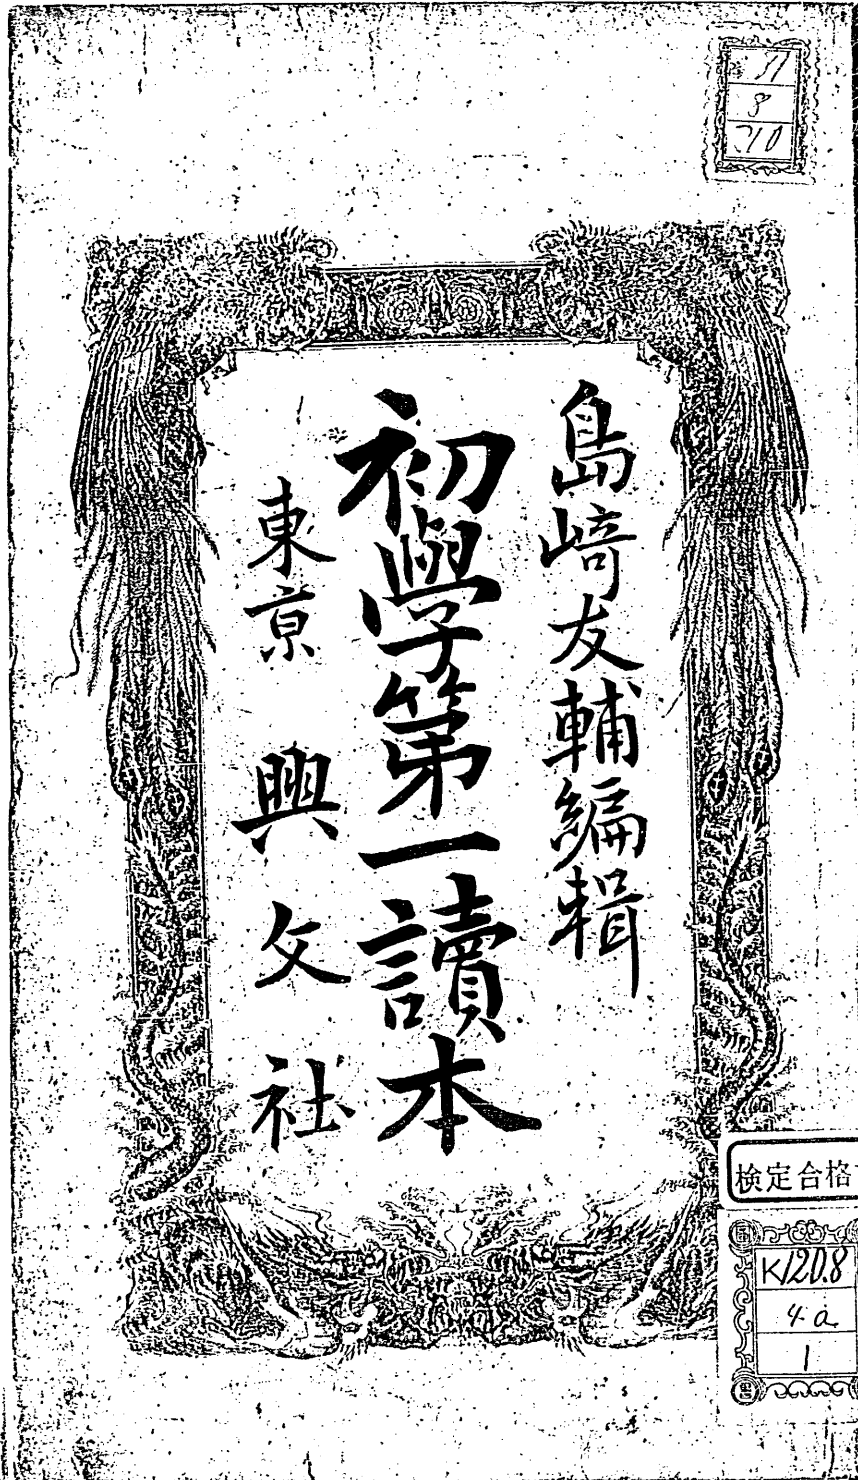 島﨑友輔編輯
初學第一讀本
東京 興文社
検定合格
K120.8
4a
1